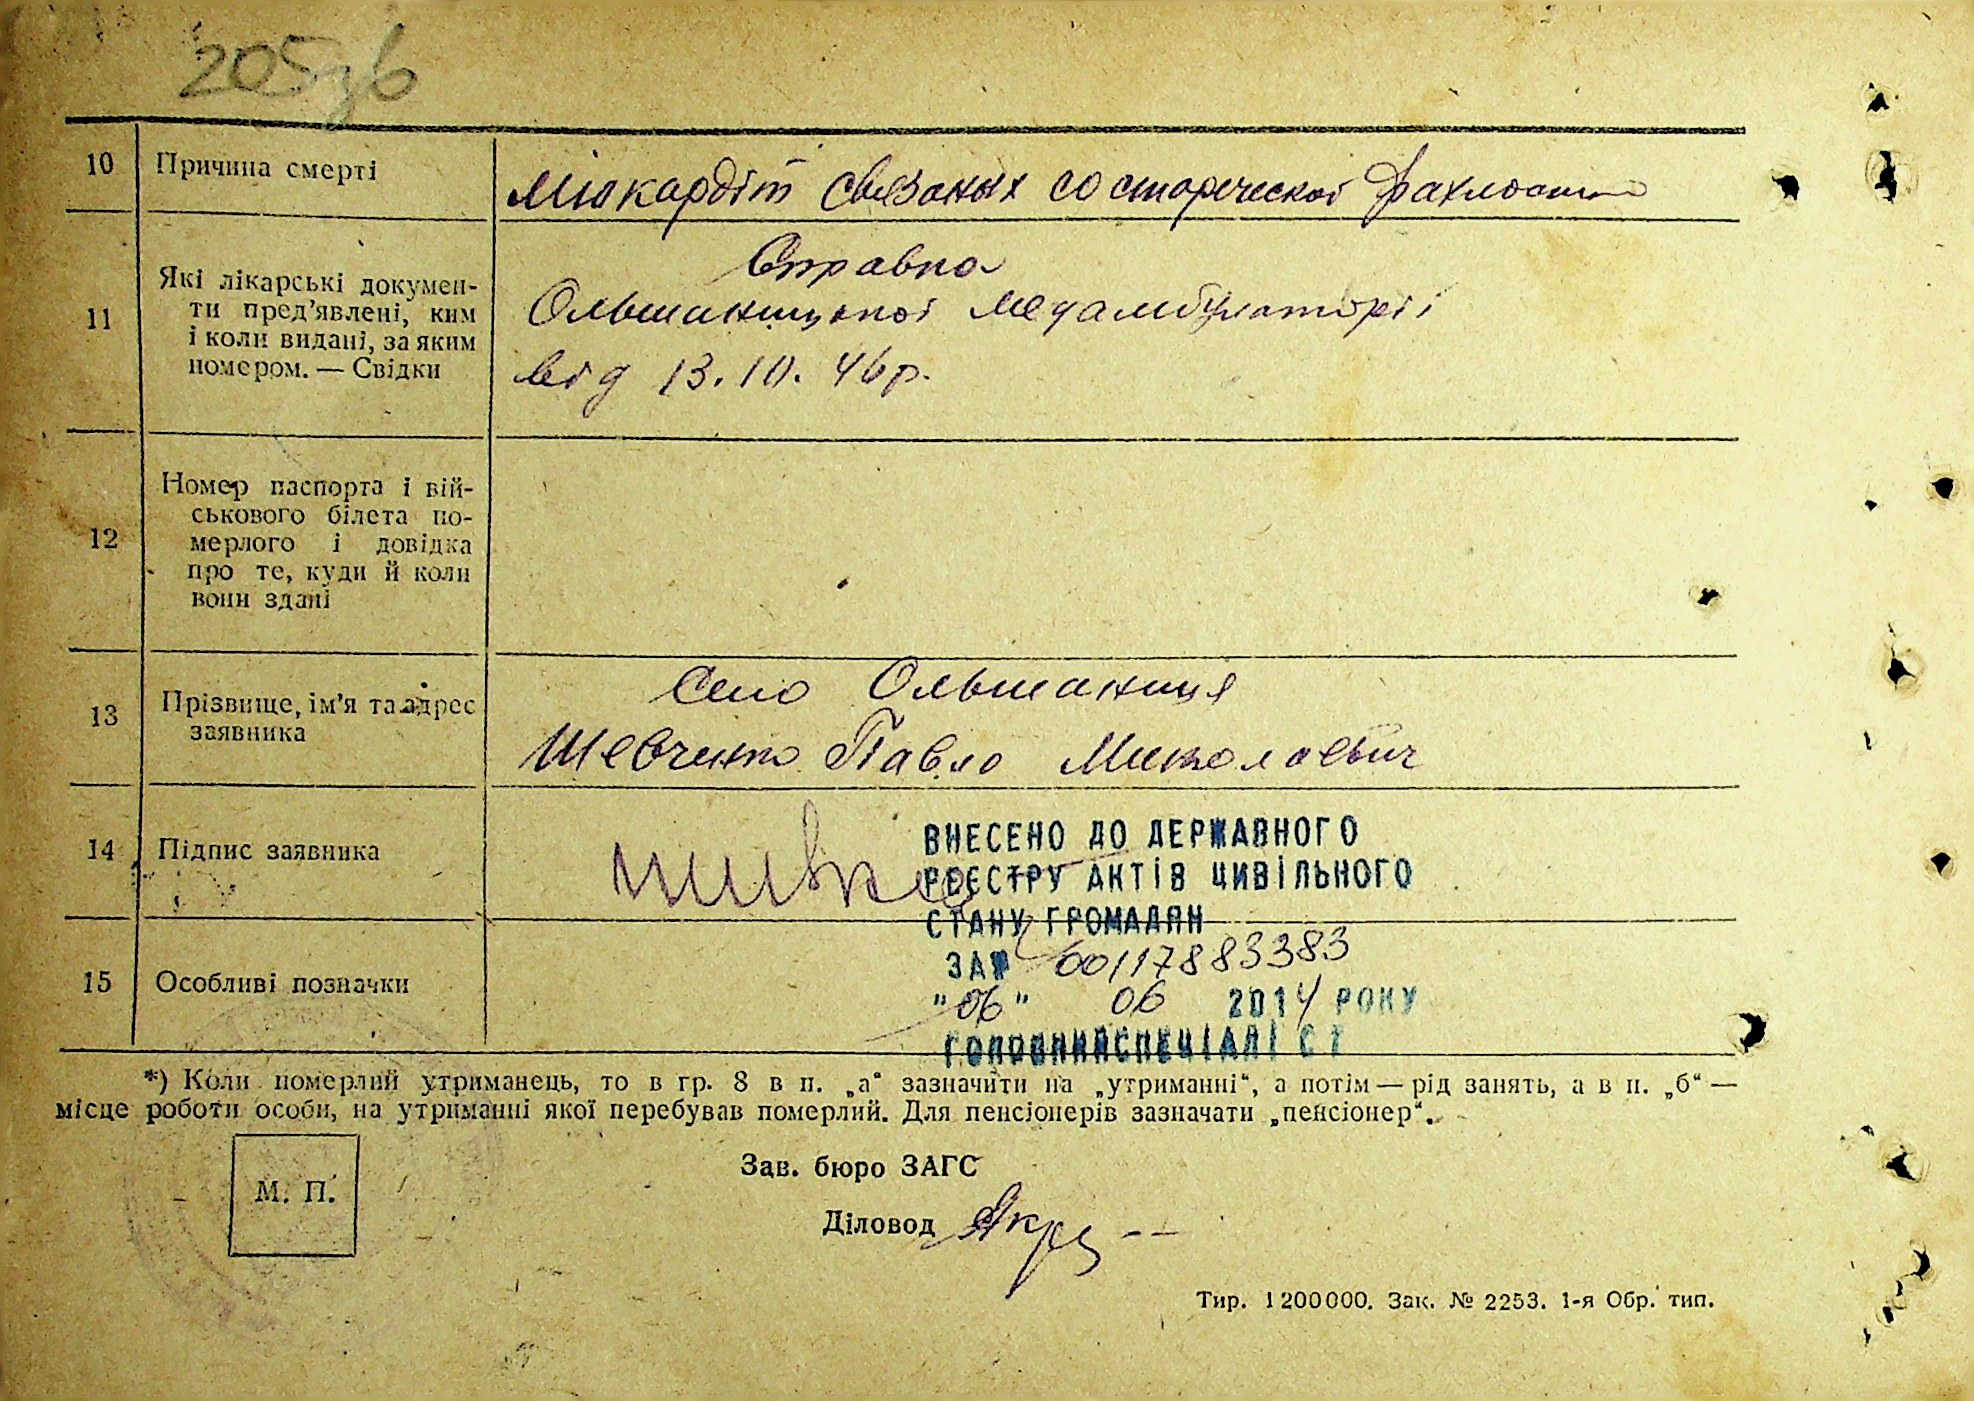 205зв
10 Причина смерті
Міокардіт связаных со старческой дряхлостью
11 Які лікарські докумен-
ти пред’явлені, ким
і коли видані, за яким
номером. — Свідки
Справка
Ольшаницької медамбулаторії
від 13.10.46р.
12 Номер паспорта і вій-
ськового білета по-
мерлого і довідка
про те, куди й коли
вони здані
13 Прізвище, ім’я та адрес
заявника
Село Ольшаниця
Шевченко Павло Миколаевич
14 Підпис заявника
15 Особливі позначки
ВНЕСЕНО ДО ДЕРЖАВНОГО
РЕЄСТРУ АКТІВ ЦИВІЛЬНОГО
СТАНУ ГРОМАДЯН
ЗА№ 00117883383
"06" 06 2014 РОКУ
ГОЛОВНИЙ СПЕЦІАЛІСТ
*) Коли померлий утриманець, то в гр. 8 в п. „а“ зазначити на „утриманні“, а потім — рід занять, а в п. „б“ —
місце роботи особи, на утриманні якої перебував померлий. Для пенсіонерів зазначати „пенсіонер“.
М. П.
Зав. бюро ЗАГС
Діловод
Тир. 1200000. Зак. № 2253. 1-я Обр. тип.